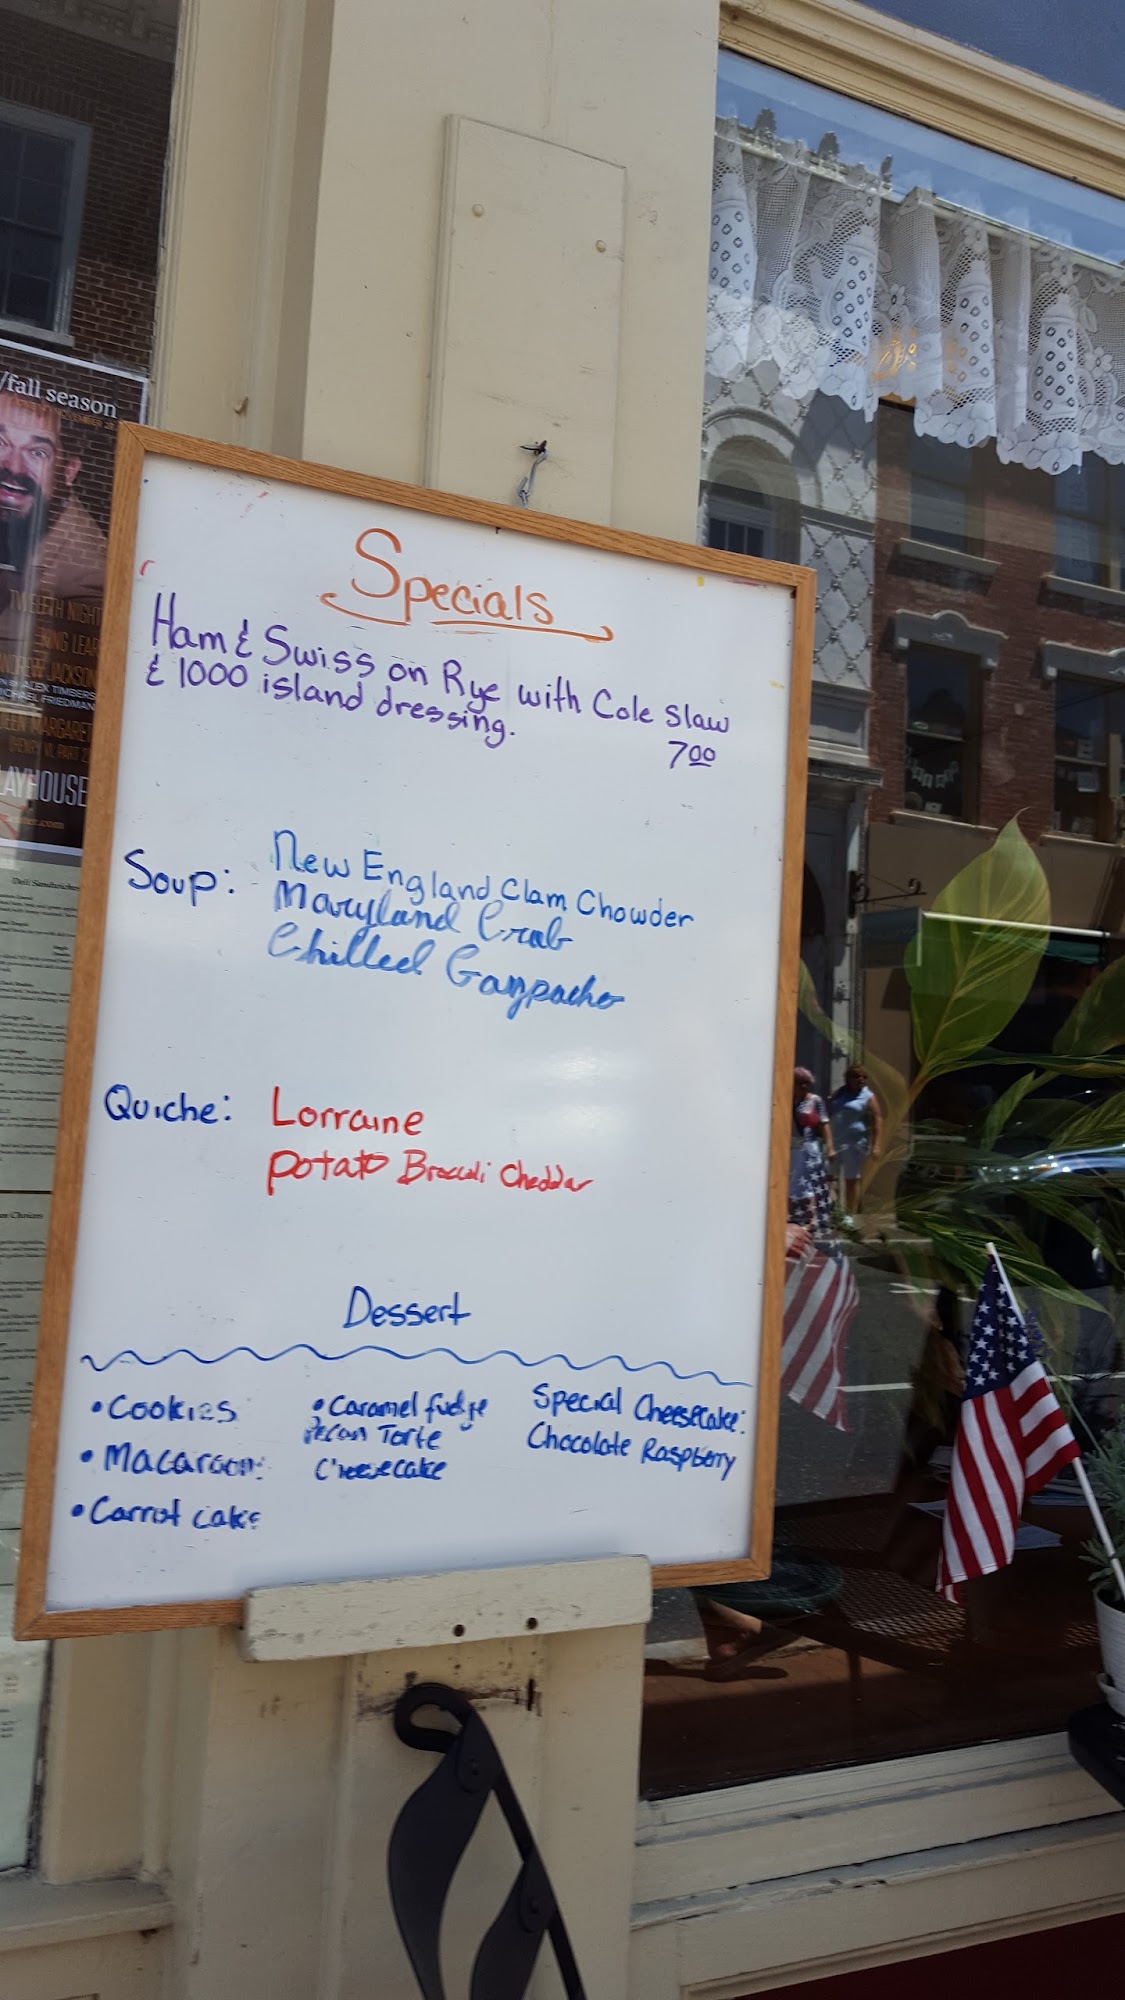 /fall season
TWELFTH NIGHT
KING LEAR
JACKSON
ALEX TIMBERS
MICHAEL FRIEDMAN
MARGARET
HENRY VI, PART 2
LAYHOUSE
Specials
Ham & Swiss on Rye with Cole Slaw
& 1000 island dressing.
700
Soup: New England Clam Chowder
Maryland Crab
Chilled Gazpacho
Quiche: Lorraine
Potato Broccoli Cheddar
Dessert
• Cookies
• Macaroons
• Carrot cake
• Caramel fudge
Pecan Torte
Cheesecake
Special Cheesecake:
Chocolate Raspberry